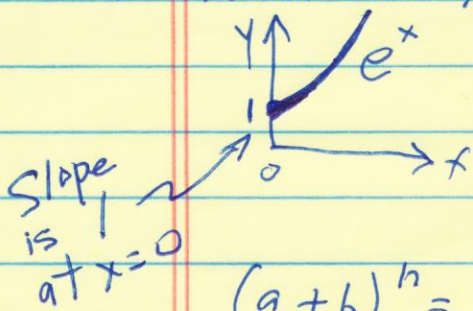 y
e^x
1
0
x
Slope
is 1
at x=0
(a+b)^n =